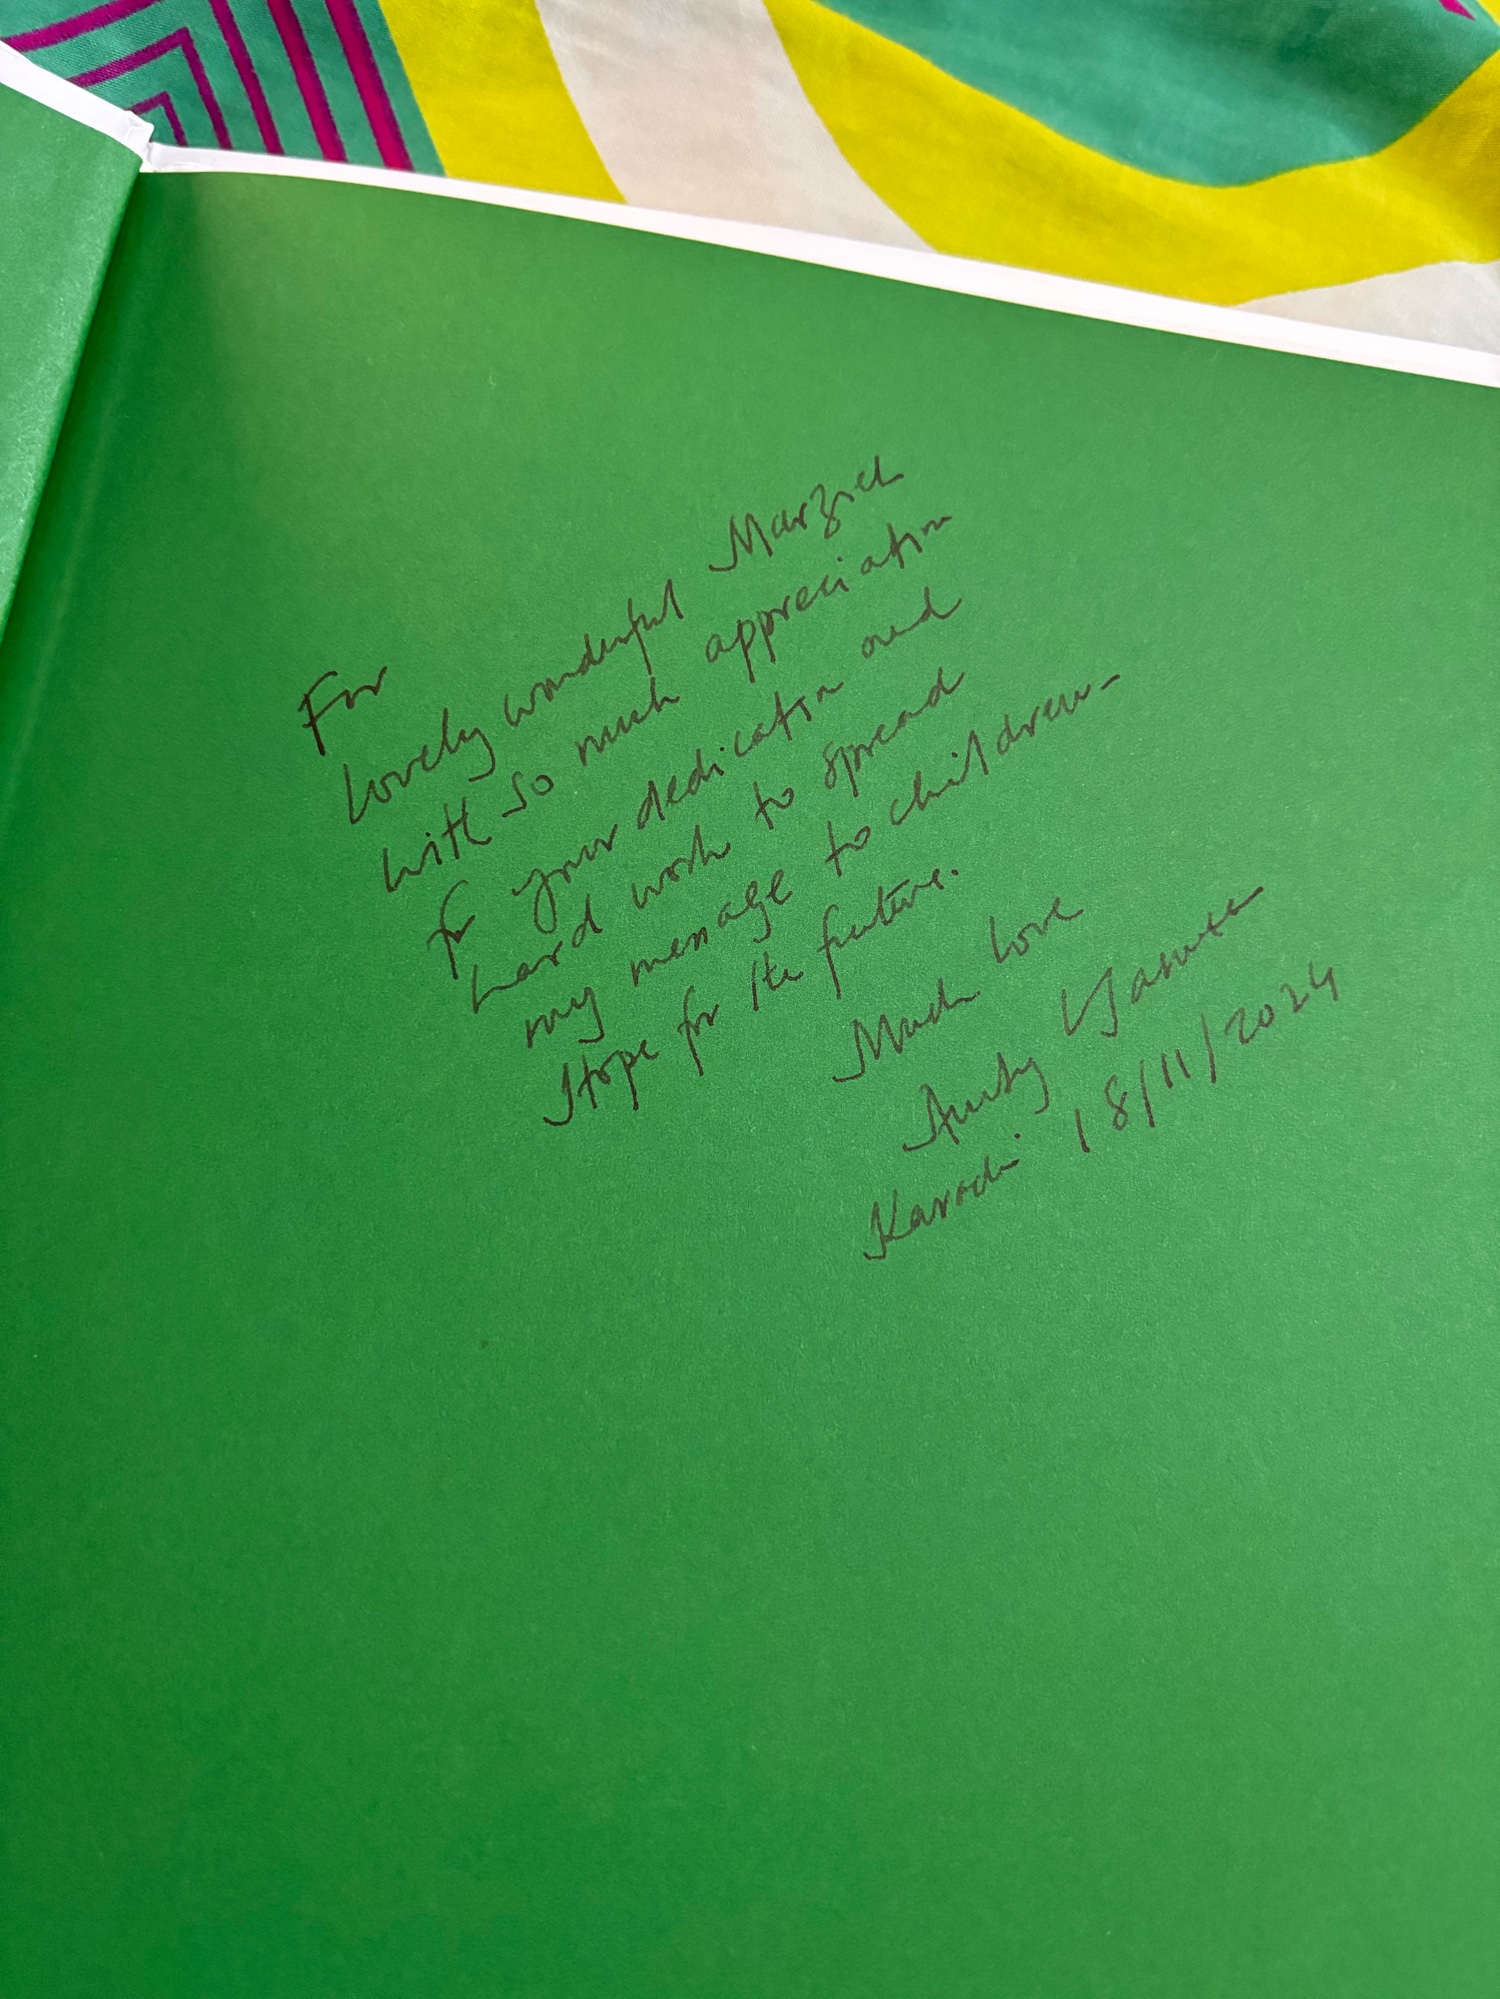 For
Lovely wonderful Marzieh
with so much appreciation
for your dedication and
hard work to spread
my message to children -
Hope for the future.
Much love
Aunty Yasmeen
Karachi 18/11/2024